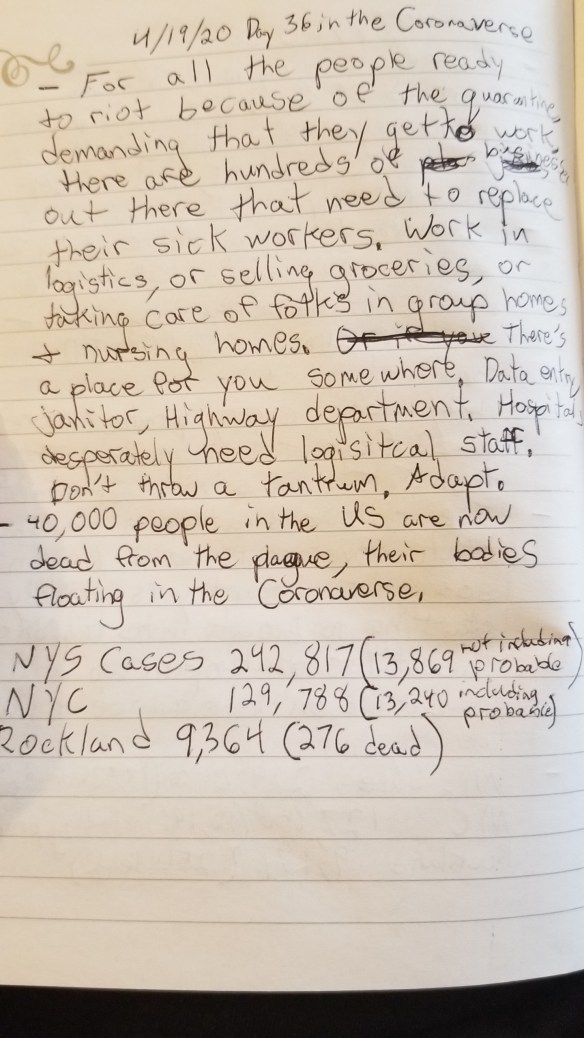 4/19/20 Day 36 in the Coronaverse
- For all the people ready
to riot because of the quarantine,
demanding that they get to work,
there are hundreds of businesses
out there that need to replace
their sick workers. Work in
logistics, or selling groceries, or
taking care of folks in group homes
+ nursing homes. Or if you There's
a place for you somewhere. Data entry,
janitor, Highway department. Hospitals
desperately need logisitcal staff.
Don't throw a tantrum. Adapt.
- 40,000 people in the US are now
dead from the plague, their bodies
floating in the Coronaverse.
NYS Cases 242,817 (13,869 not including probable)
NYC 129,788 (13,240 including probable)
Rockland 9,364 (276 dead)